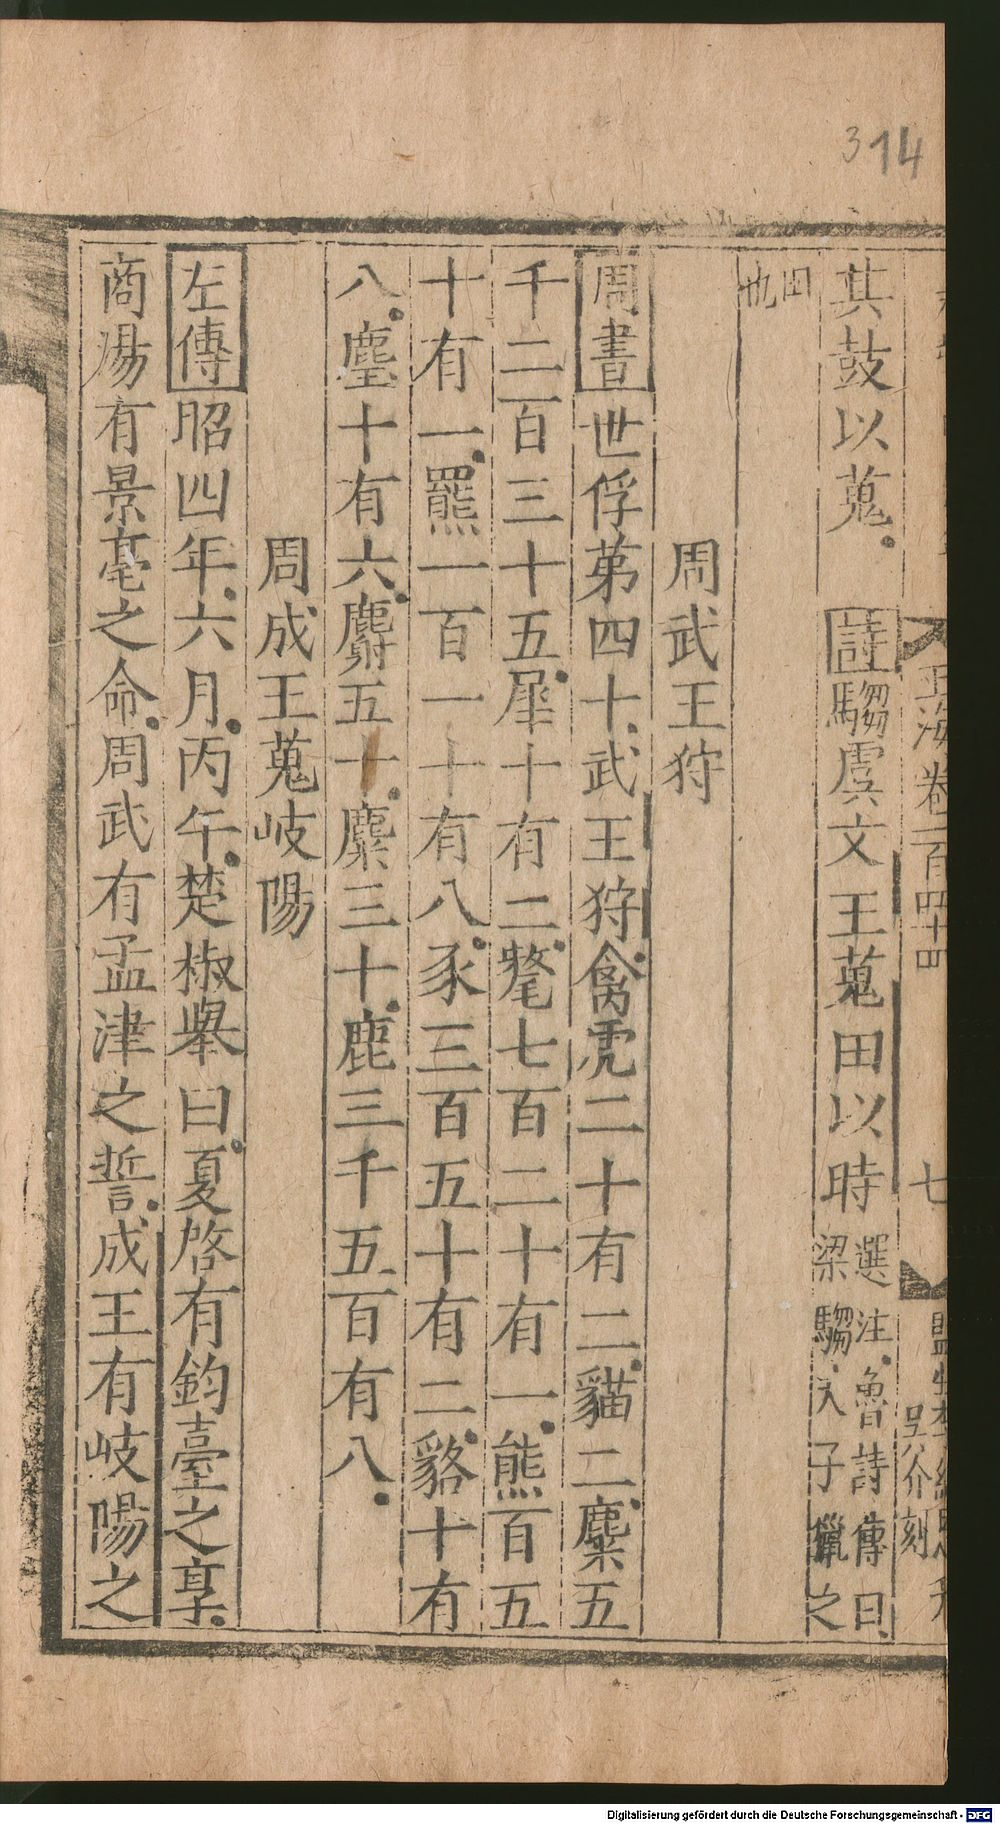 314
玉海卷一百四十四
七
呈介刻
其鼓以蒐 詩騶虞文王蒐田以時 選注魯詩傳曰
梁騶天子獵之
田
也
周武王狩
周書世俘第四十武王狩禽虎二十有二貓二麋五
千二百三十五犀十有二氂七百二十有一熊百五
十有一羆一百一十有八豕三百五十有二貉十有
八麈十有六麝五十麋三十鹿三千五百有八
周成王蒐岐陽
左傳昭四年六月丙午楚椒舉曰夏啓有鈞臺之享
商湯有景亳之命周武有孟津之誓成王有岐陽之
Digitalisierung gefördert durch die Deutsche Forschungsgemeinschaft - DFG